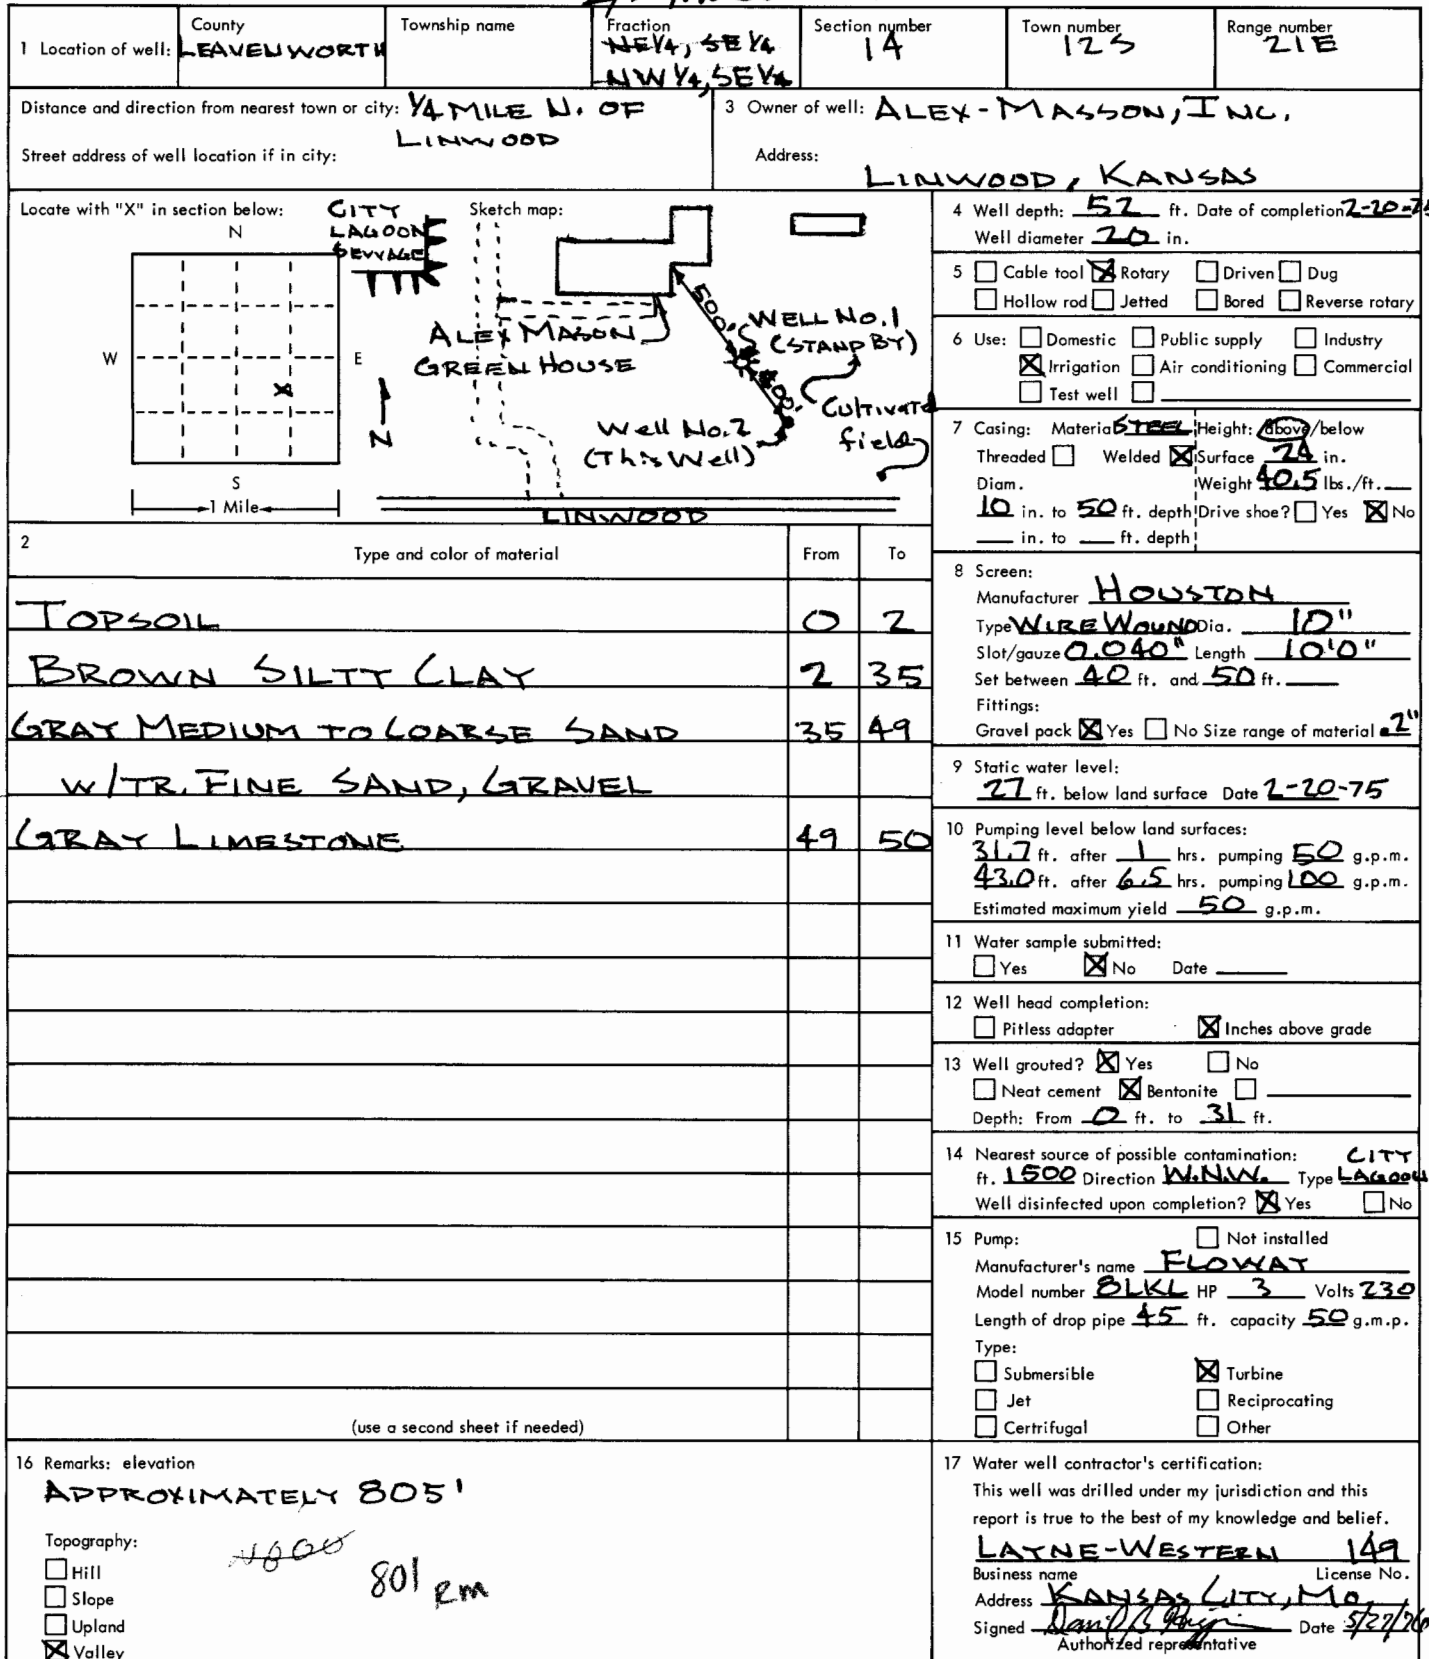 County
Township name
Fraction
Section number
Town number
Range number
1 Location of well:
LEAVENWORTH
NE¼, SE¼
NW¼, SE¼
14
12S
21E
Distance and direction from nearest town or city: ¼ MILE N. OF
LINWOOD
Street address of well location if in city:
3 Owner of well: ALEX-MASSON, INC.
Address:
LINWOOD, KANSAS
Locate with "X" in section below:
N
W
E
S
1 Mile
X
CITY
LAGOON
SEWAGE
Sketch map:
ALEX MASON
GREEN HOUSE
N
500'
WELL NO.1
(STAND BY)
400'
Cultivated
field
Well No.2
(This Well)
LINWOOD
2
Type and color of material
From
To
TOPSOIL 0 2
BROWN SILTY CLAY 2 35
GRAY MEDIUM TO COARSE SAND 35 49
W/TR. FINE SAND, GRAVEL
GRAY LIMESTONE 49 50
(use a second sheet if needed)
4 Well depth: 52 ft. Date of completion 2-20-75
Well diameter 20 in.
5 Cable tool X Rotary Driven Dug
Hollow rod Jetted Bored Reverse rotary
6 Use: Domestic Public supply Industry
X Irrigation Air conditioning Commercial
Test well
7 Casing: Material STEEL Height: Above/below
Threaded Welded X Surface 24 in.
Diam. Weight 40.5 lbs./ft.
10 in. to 50 ft. depth Drive shoe? Yes X No
in. to ft. depth
8 Screen:
Manufacturer HOUSTON
Type WIRE WOUND Dia. 10"
Slot/gauze 0.040" Length 10'0"
Set between 40 ft. and 50 ft.
Fittings:
Gravel pack X Yes No Size range of material .2"
9 Static water level:
27 ft. below land surface Date 2-20-75
10 Pumping level below land surfaces:
31.7 ft. after 1 hrs. pumping 50 g.p.m.
43.0 ft. after 6.5 hrs. pumping 100 g.p.m.
Estimated maximum yield 50 g.p.m.
11 Water sample submitted:
Yes X No Date
12 Well head completion:
Pitless adapter X Inches above grade
13 Well grouted? X Yes No
Neat cement X Bentonite
Depth: From 0 ft. to 31 ft.
14 Nearest source of possible contamination: CITY
ft. 1500 Direction W.N.W. Type LAGOON
Well disinfected upon completion? X Yes No
15 Pump: Not installed
Manufacturer's name FLOWAY
Model number 8LKL HP 3 Volts 230
Length of drop pipe 45 ft. capacity 50 g.m.p.
Type:
Submersible X Turbine
Jet Reciprocating
Certrifugal Other
16 Remarks: elevation
APPROXIMATELY 805'
Topography:
Hill
Slope
Upland
X Valley
801 RM
17 Water well contractor's certification:
This well was drilled under my jurisdiction and this
report is true to the best of my knowledge and belief.
LAYNE-WESTERN 149
Business name License No.
Address KANSAS CITY, MO.
Signed Date 5/27/76
Authorized representative